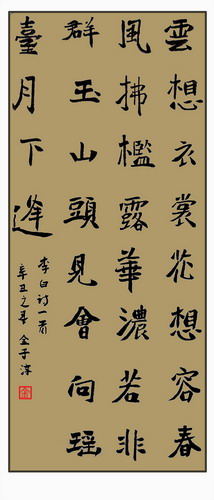 雲想衣裳花想容春
風拂檻露華濃若非
群玉山頭見會向瑤
臺月下逢
李白詩一首
辛丑之春金子淳